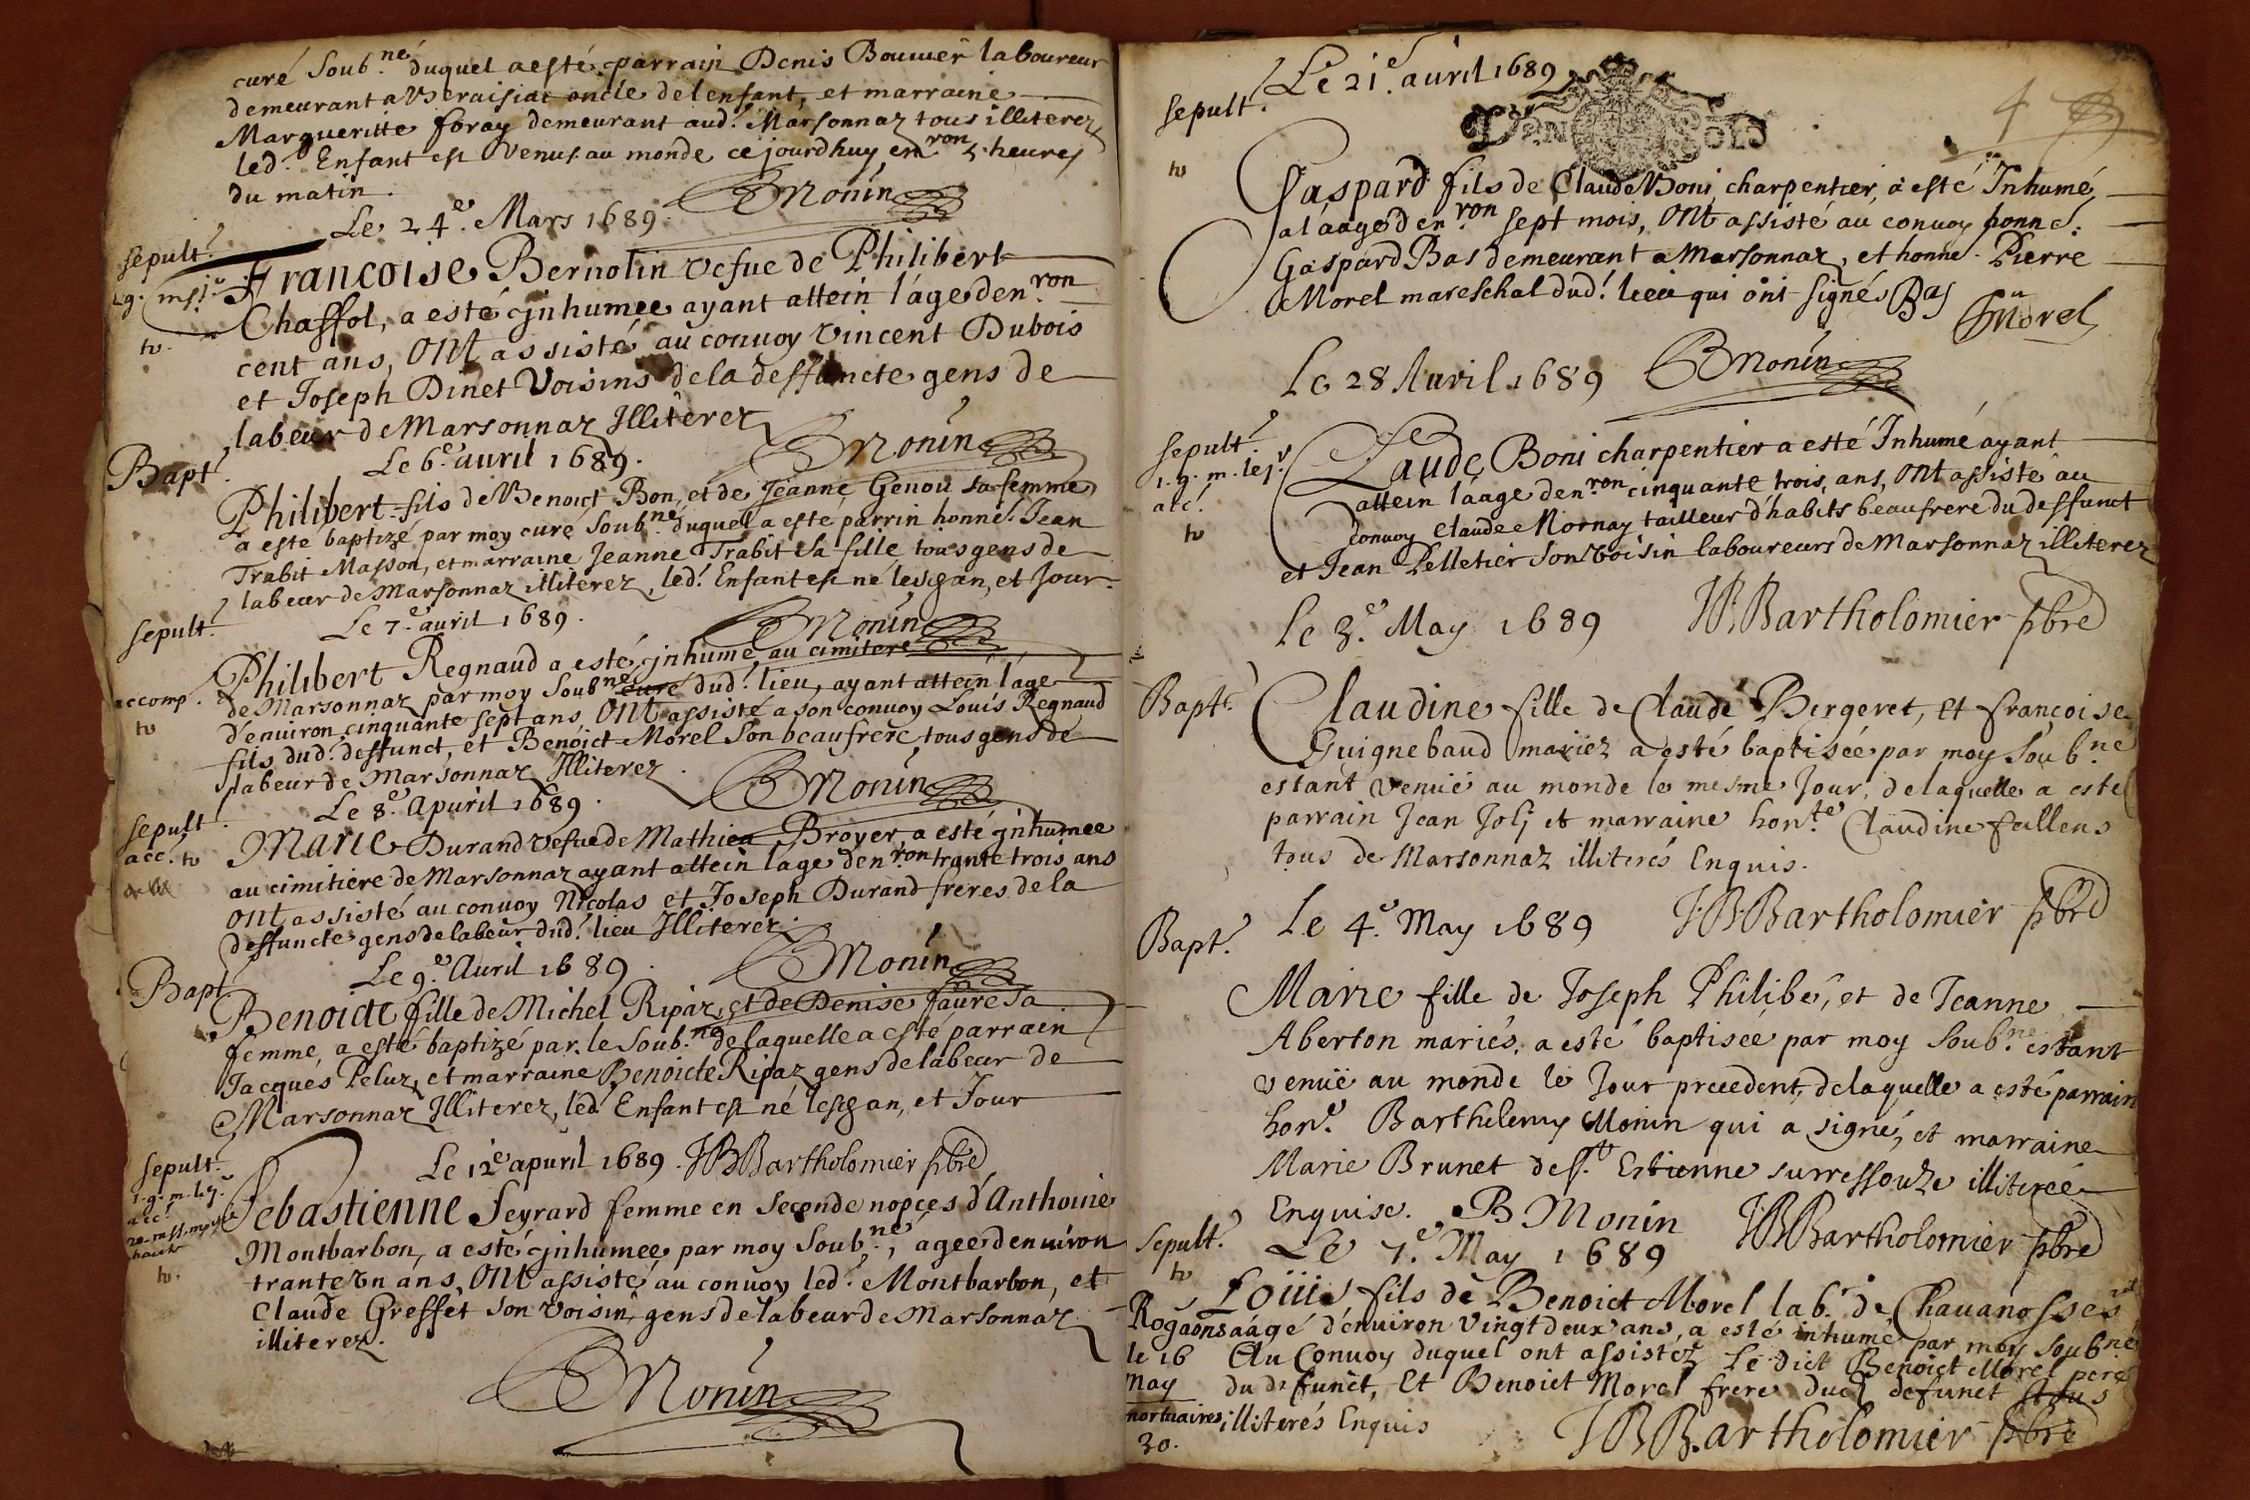 curé Soub.né duquel a esté parrain Denis Bouuier laboureur
demeurant a Veraisiat oncle de lenfant, et marraine
Margueritte foray demeurant aud.t Marsonnaz tous illiterez
led.t Enfant est venus au monde ce jourdhuy en.ron 5 heures
du matin. BMonin
Le 24.e Mars 1689.
sepult.e
Francoise Bernolin vefue de Philibert
Chassol, a esté jnhumee ayant attein l'age den.ron
to.
cent ans, ont assisté au conuoy Vincent Dubois
et Joseph Dinet Voisins de la deffuncte gens de
labeur de Marsonnaz Illiterez BMonin
Bapt.e
Le 6.e auril 1689.
Philibert fils de Benoict Bon, et de Jeanne Genou sa femme
a esté baptizé par moy curé Soub.né duquel a esté parrin honne.t Jean
Trabit Masson, et marraine Jeanne Trabit sa fille tous gens de
labeur de Marsonnaz illiterez, led.t Enfant est né lesd an, et Jour.
sepult.e
Le 7.e auril 1689. BMonin
Philibert Regnaud a esté jnhumé au cimitere
accomp.
de Marsonnaz par moy Soub.né curé dud.t lieu, ayant attein l'age
to
d'enuiron cinquante sept ans, ont assisté a son conuoy Louis Regnaud
fils dud.t deffunct, et Benoict Morel son beaufrere, tous gens de
labeur de Marsonnaz Illiterez. BMonin
Le 8.e apuril 1689.
sepult.
acc.t to
Marie Durand vefue de Mathieu Broyer a esté jnhumee
au cimitiere de Marsonnaz ayant attein l'age den.ron trante trois ans
ont assisté au conuoy Nicolas et Joseph Durand freres de la
deffuncte gens de labeur dud.t lieu Illiterez. BMonin
Bapt.e
Le 9.e Auril 1689.
Benoicte fille de Michel Ripaz, et de Denise faure sa
femme, a esté baptizé par le Soub.né de laquelle a esté parrain
Jacques Peluz, et marraine Benoicte Ripaz gens de labeur de
Marsonnaz Illiterez, led.t Enfant est né lesd an, et Jour
Le 12.e apuril 1689. JBBartholomier pbre
sepult.e
1. g. m. le j.r
acc.t
Sebastienne Seyrard femme en Seconde nopces d'Anthoine
Montbarbon, a esté jnhumee par moy Soub.né, agee denuiron
to.
trante vn ans, ont assisté au conuoy led.t Montbarbon, et
Claude Greffet son voisin, gens de labeur de Marsonnaz
illiterez.
BMonin
Le 21.e auril 1689
sepult.e
4
DEN SOLD
to
Gaspard fils de Claude Boni charpentier, a esté Inhumé
a l'aage den.ron sept mois, ont assisté au conuoy honne.t
Gaspard Bas demeurant a Marsonnaz, et honne. Pierre
Morel mareschal dud.t lieu qui ont signés Bas
Morel
Le 28 Auril 1689 BMonin
sepult.e
1. g. m. le j.r
acc.t
to
Claude Boni charpentier a esté Inhumé ayant
attein l'aage den.ron cinquante trois ans, ont assisté au
conuoy Claude Mornay tailleur d'habits beaufrere du deffunct
et Jean Pelletier son voisin laboureurs de Marsonnaz illiterez
Le 3.e May 1689 JBBartholomier pbre
Bapt.e
Claudine fille de Claude Bergeret, et françoise
Guignebaud mariez a esté baptisée par moy soub.né
estant venüe au monde le mesme Jour, de laquelle a esté
parrain Jean Joli et marraine hon.te Claudine fallens
tous de Marsonnaz illiterés Enquis.
Le 4.e May 1689 JBBartholomier pbre
Bapt.e
Marie fille de Joseph Philibe, et de Jeanne
Aberton mariés, a esté baptisée par moy soub.né estant
venüe au monde le Jour precedent, de laquelle a esté parrain
hon.e Barthelemy Monin qui a signé, et marraine
Marie Brunet de s.t Estienne surressouze illiterée
Enquise. B Monin JBBartholomier pbre
sepult.e
Le 7.e May 1689
to
Loüis fils de Benoict Morel lab.r de Chauanosses
aagé d'enuiron vingt deux ans, a esté inhumé par moy soub.né
Au Conuoy duquel ont assistez Le dict Benoict Morel pere
du defunct, Et Benoict Morel frere dud defunct tous
illiterés Enquis
Rogaons
le 16
may
mortuaires
30.
JBBartholomier pbre